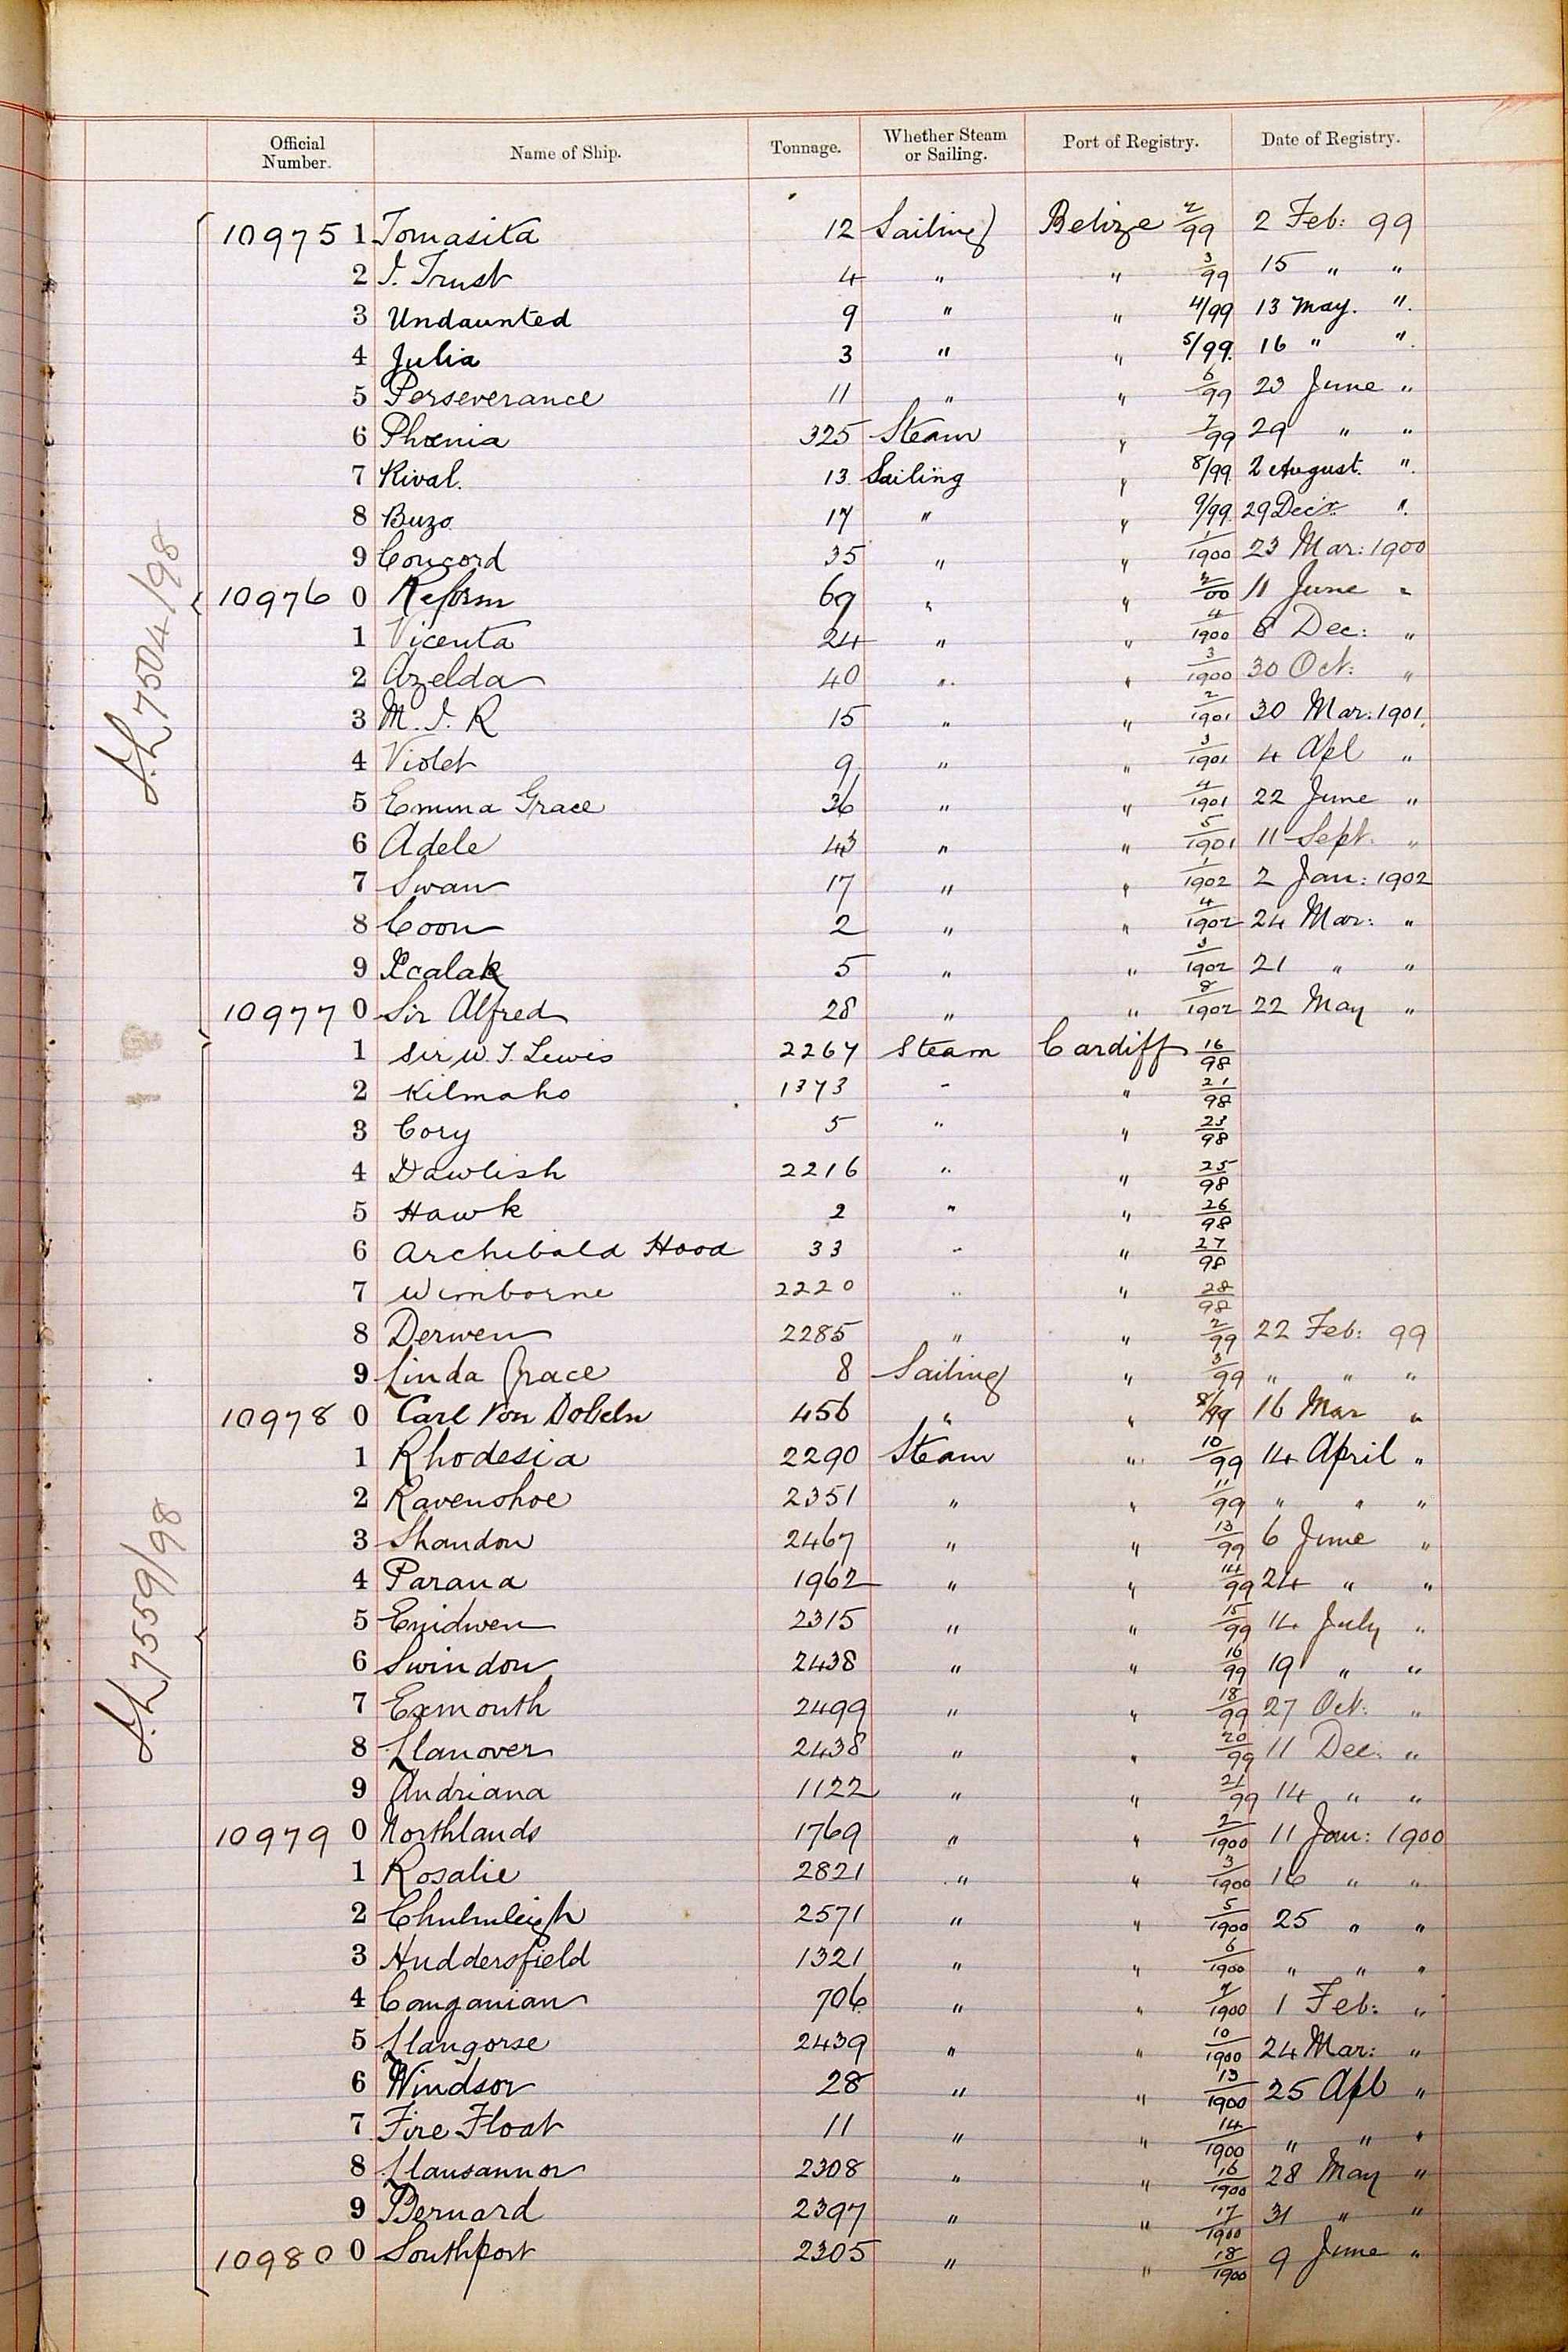 Official Number. Name of Ship. Tonnage. Whether Steam or Sailing. Port of Registry. Date of Registry.
10975 1 Tomasita 12 Sailing Belize 2/99 2 Feb: 99
2 I. Trust 4 " " 3/99 15 " "
3 Undaunted 9 " " 4/99 13 May. ".
4 Julia 3 " " 5/99. 16 " ".
5 Perseverance 11 " " 6/99 23 June "
6 Phœnia 325 Steam " 7/99 29 " "
7 Rival. 13. Sailing " 8/99. 2 August. ".
8 Buzo 17 " " 9/99. 29 Decr. ".
9 Concord 35 " " 1/1900 23 Mar: 1900
10976 0 Reform 69 " " 2/00 11 June "
1 Vicenta 24 " " 4/1900 8 Dec: "
2 Azelda 40 " " 3/1900 30 Oct: "
3 M. I. R 15 " " 2/1901 30 Mar: 1901.
4 Violet 9 " " 3/1901 4 Apl "
5 Emma Grace 36 " " 4/1901 22 June "
6 Adele 43 " " 5/1901 11 Sept. "
7 Swan 17 " " 1/1902 2 Jan: 1902
8 Coon 2 " " 4/1902 24 Mar: "
9 Xcalak 5 " " 3/1902 21 " "
10977 0 Sir Alfred 28 " " 8/1902 22 May "
S.L 7504/98
1 Sir W. T. Lewis 2267 Steam Cardiff 16/98
2 Kilmaho 1373 " " 21/98
3 Cory 5 " " 23/98
4 Dawlish 2216 " " 25/98
5 Hawk 2 " " 26/98
6 Archibald Hood 33 " " 27/98
7 Wimborne 2220 " " 28/98
8 Derwen 2285 " " 2/99 22 Feb: 99
9 Linda Grace 8 Sailing " 3/99 " " "
10978 0 Carl Von Dobeln 456 " " 8/99 16 Mar "
1 Rhodesia 2290 Steam " 10/99 14 April "
2 Ravenshoe 2351 " " 11/99 " " "
3 Shandon 2467 " " 13/99 6 June "
4 Parana 1962 " " 14/99 24 " "
5 Enidwen 2315 " " 15/99 14 July "
6 Swindon 2438 " " 16/99 19 " "
7 Exmouth 2499 " " 18/99 27 Oct: "
8 Llanover 2438 " " 20/99 11 Dec: "
9 Andriana 1122 " " 21/99 14 " "
10979 0 Northlands 1769 " " 2/1900 11 Jan: 1900
1 Rosalie 2821 " " 3/1900 16 " "
2 Chulmleigh 2571 " " 5/1900 25 " "
3 Huddersfield 1321 " " 6/1900 " " "
4 Canganian 706 " " 7/1900 1 Feb: "
5 Llangorse 2439 " " 10/1900 24 Mar: "
6 Windsor 28 " " 13/1900 25 Apl "
7 Fire Float 11 " " 14/1900 " " "
8 Llansannor 2308 " " 16/1900 28 May "
9 Bernard 2397 " " 17/1900 31 " "
10980 0 Southport 2305 " " 18/1900 9 June "
S.L 7559/98